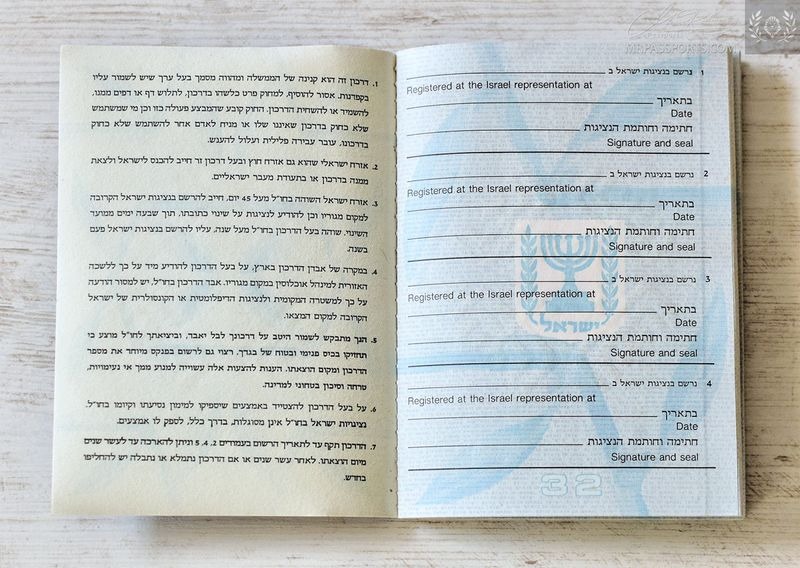 MRPASSPORTS.COM
1. דרכון זה הוא קנינה של הממשלה ומהווה מסמך בעל ערך שיש לשמור עליו
בקפדנות. אסור להוסיף, למחוק פרט כלשהו בדרכון, לתלוש דף או דפים ממנו,
להשמיד או להשחית הדרכון. החוק קובע שהמבצע פעולה כזו וכן מי שמשתמש
שלא כחוק בדרכון שאיננו שלו או מניח לאדם אחר להשתמש שלא כחוק
בדרכונו, עובר עבירה פלילית ועלול להענש.
2. אזרח ישראלי שהוא גם אזרח חוץ ובעל דרכון זר חייב להכנס לישראל ולצאת
ממנה בדרכון או בתעודת מעבר ישראליים.
3. אזרח ישראל השוהה בחו"ל מעל 45 יום, חייב להרשם בנציגות ישראל הקרובה
למקום מגוריו וכן להודיע לנציגות על שינוי כתובתו, תוך שבעה ימים ממועד
השינוי. שוהה בעל הדרכון בחו"ל מעל שנה, עליו להרשם בנציגות ישראל פעם
בשנה.
4. במקרה של אבדן הדרכון בארץ, על בעל הדרכון להודיע מיד על כך ללשכה
האזורית למינהל אוכלוסין במקום מגוריו. אבד הדרכון בחו"ל, יש למסור הודעה
על כך למשטרה המקומית ולנציגות הדיפלומטית או הקונסולרית של ישראל
הקרובה למקום המצאו.
5. הנך מתבקש לשמור היטב על דרכונך לבל יאבד, וביציאתך לחו"ל מוצע כי
תחזיקו בכיס פנימי ובטוח של בגדך. רצוי גם לרשום בפנקס מיוחד את מספר
הדרכון ומקום הוצאתו. הענות להצעות אלה עשוייה למנוע ממך אי נעימויות,
טרחה וסיכון בטחוני למדינה.
6. על בעל הדרכון להצטייד באמצעים שיספיקו למימון נסיעתו וקיומו בחו"ל.
נציגויות ישראל בחו"ל אינן מסוגלות, בדרך כלל, לספק לו אמצעים.
7. הדרכון תקף עד לתאריך הרשום בעמודים 2, 4, 5 וניתן להארכה עד לעשר שנים
מיום הוצאתו. לאחר עשר שנים או אם הדרכון נתמלא או נתבלה יש להחליפו
בחדש.
1 נרשם בנציגות ישראל ב
Registered at the Israel representation at
בתאריך
Date
חתימה וחותמת הנציגות
Signature and seal
2 נרשם בנציגות ישראל ב
Registered at the Israel representation at
בתאריך
Date
חתימה וחותמת הנציגות
Signature and seal
3 נרשם בנציגות ישראל ב
Registered at the Israel representation at
בתאריך
Date
חתימה וחותמת הנציגות
Signature and seal
ישראל
4 נרשם בנציגות ישראל ב
Registered at the Israel representation at
בתאריך
Date
חתימה וחותמת הנציגות
Signature and seal
32